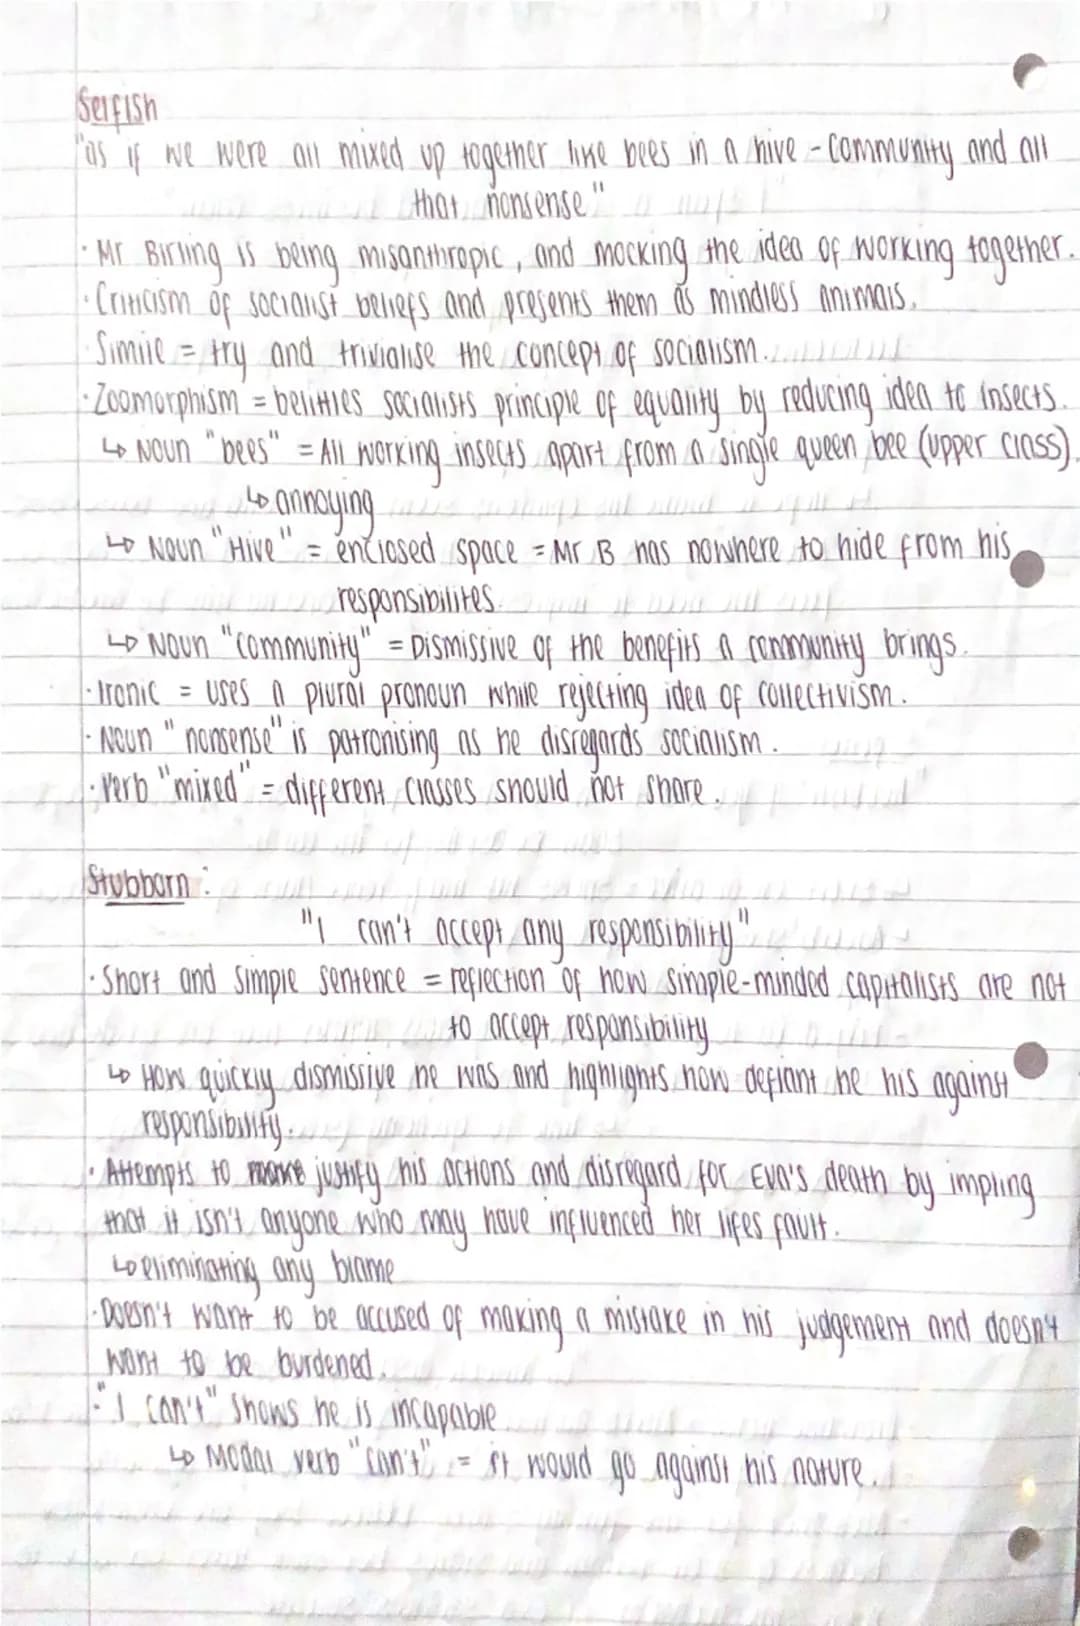 Selfish
"as if we were all mixed up together like bees in a hive - community and all
that nonsense"
· Mr Birling is being misanthropic, and mocking the idea of working together.
· Criticism of socialist beliefs and presents them as mindless animals.
· Simile = try and trivialise the concept of socialism.
· Zoomorphism = belittles socialists principle of equality by reducing idea to insects.
↳ Noun "bees" = All working insects apart from a single queen bee (upper class).
↳ annoying
↳ Noun "Hive" = enclosed space = Mr B has nowhere to hide from his
responsibilites.
↳ Noun "community" = Dismissive of the benefits a community brings.
· Ironic = uses a plural pronoun while rejecting idea of collectivism.
· Noun "nonsense" is patronising as he disregards socialism.
· Verb "mixed" = different classes should not share.
Stubborn :
"I can't accept any responsibility"
· Short and simple sentence = reflection of how simple-minded capitalists are not
to accept responsibility
↳ How quickly dismissive he was and highlights how defiant he his against
responsibility.
· Attempts to justify his actions and disregard for Eva's death by impling
that it isn't anyone who may have influenced her lifes fault.
↳ eliminating any blame
· Doesn't want to be accused of making a mistake in his judgement and doesn't
want to be burdened.
· "I can't" shows he is incapable
↳ Modal verb "can't" = it would go against his nature.